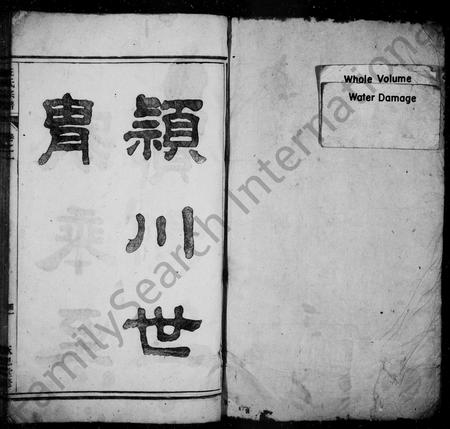 潁川世
胄
Whole Volume
Water Damage
FamilySearch International